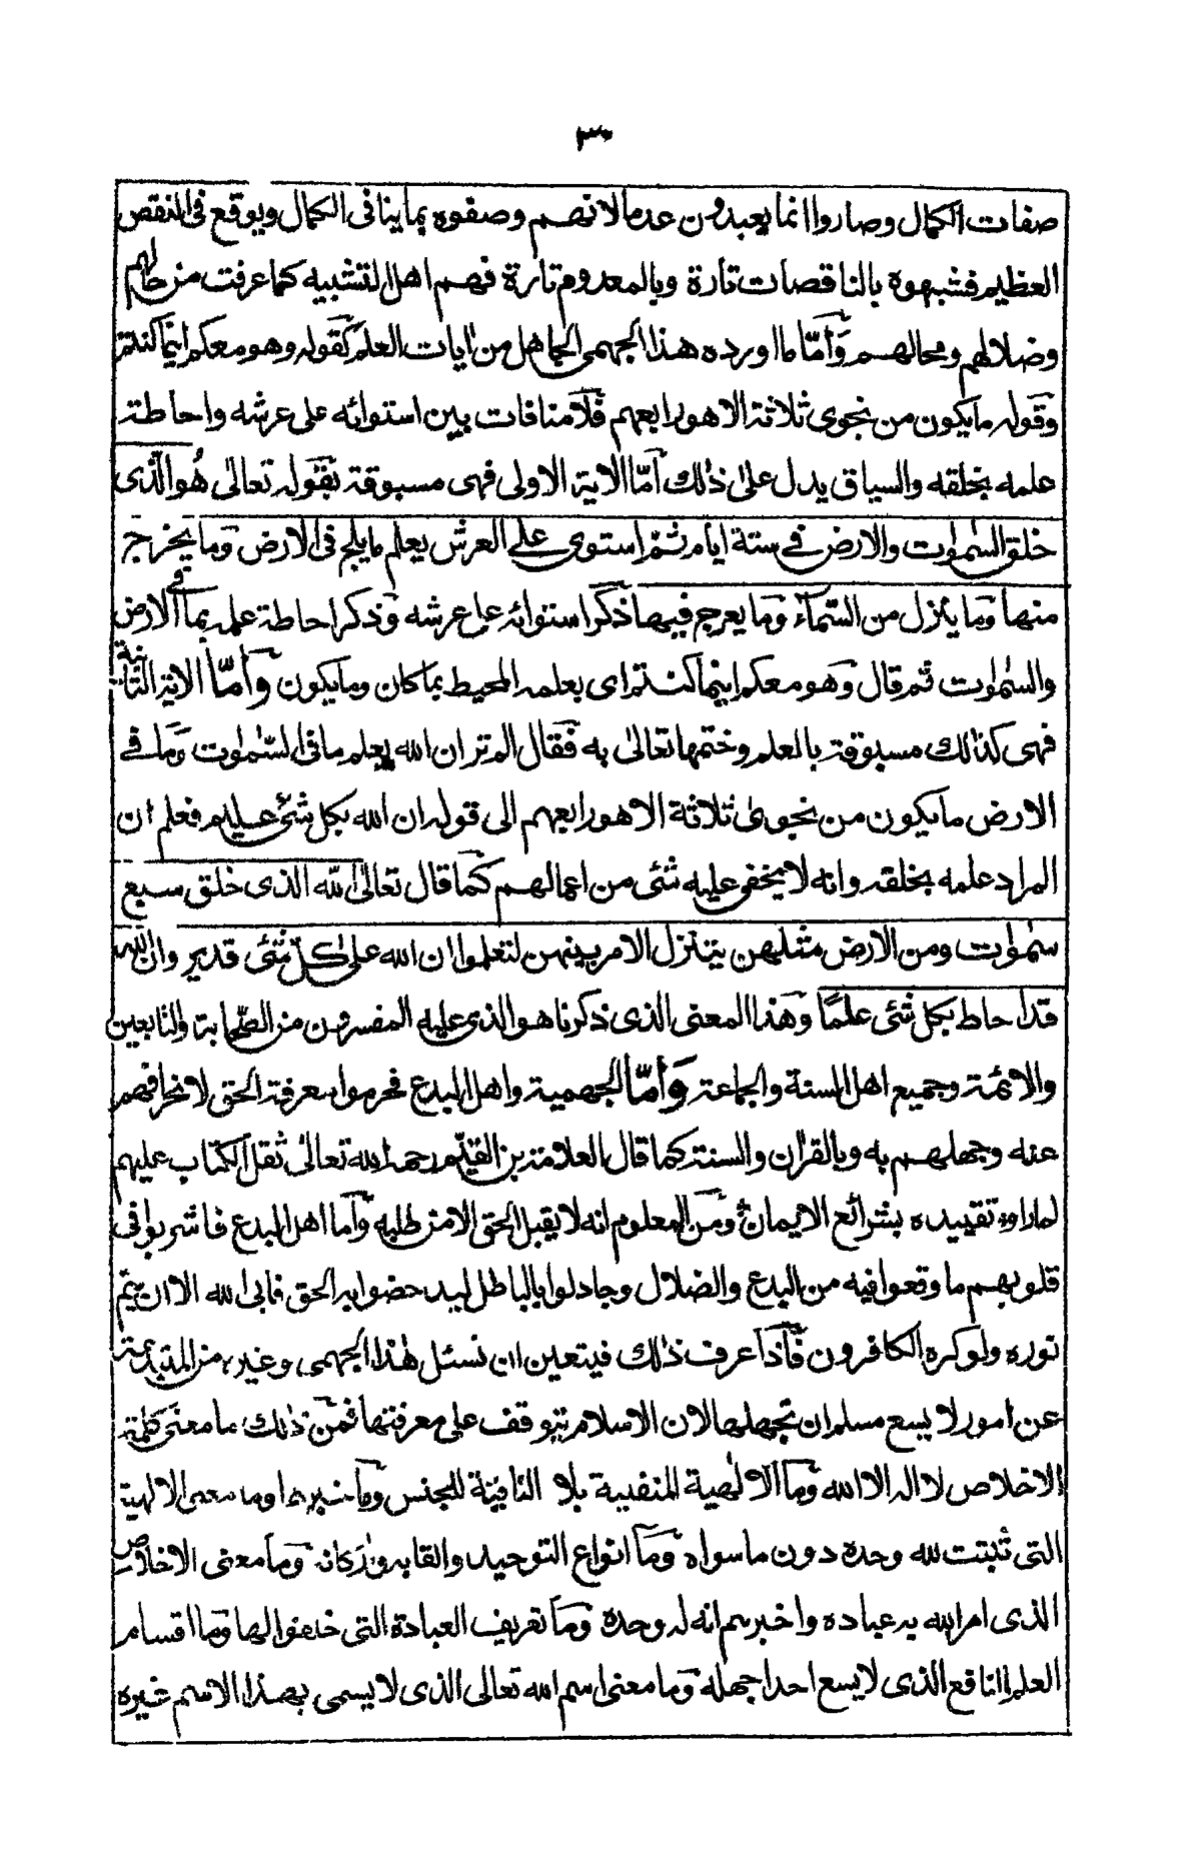 ٣٠
صفات الكمال وصاروا انما يعبدون عدما لانهم وصفوه بما ينافى الكمال ويوقع فى النقص
العظيم فشبهوه بالناقصات تارة وبالمعدوم تارة فهم اهل التشبيه كما عرفت من حالهم
وضلالهم ومحالهم وَأمّا ما اورده هذا الجهمى الجاهل من ايات العلم كقوله وهو معكم اينما كنتم
وقوله ما يكون من نجوى ثلاثة الا هو رابعهم فلا منافات بين استوائه على عرشه واحاطة
علمه بخلقه والسياق يدل على ذٰلك أمّا الاية الاولى فهى مسبوقة بقوله تعالىٰ هُو الّذى
خلق السمٰوٰت والارض فى ستة ايام ثم استوى على العرش يعلم ما يلج فى الارض وما يخرج
منها وما ينزل من السّماء وما يعرج فيها ذكر استوائه على عرشه وذكر احاطة علمه بما فى الارض
والسمٰوٰت ثم قال وهو معكم اينما كنتم اى بعلمه المحيط بما كان وما يكون وَأمّا الاية الثانية
فهى كذالك مسبوقة بالعلم وختمها تعالىٰ به فقال الم تر ان الله يعلم ما فى السّمٰوٰت وما فى
الارض ما يكون من نجوىٰ ثلاثة الا هو رابعهم الى قوله ان الله بكل شئ عليم فعلم ان
المراد علمه بخلقه وانه لا يخفى عليه شئ من اعمالهم كما قال تعالىٰ الله الذى خلق سبع
سمٰوٰت ومن الارض مثلهن يتنزل الامر بينهن لتعلموا ان الله علىٰ كلّ شئ قدير وان الله
قد احاط بكل شئ علمًا وهذا المعنى الذى ذكرنا هو الذى عليه المفسرون من الصّحابة والتابعين
والائمة وجميع اهل السنة والجماعة وَأمّا الجهمية واهل البدع فحرموا معرفة الحق لانحرافهم
عنه وجهلهم به وبالقران والسنة كما قال العلامة بن القيّم رحمه الله تعالىٰ ثقل الكتاب عليهم
لما راوا تقييده بشرائع الايمان ومن المعلوم انه لا يقبل الحق الا من طلبه وأما اهل البدع فاشربوا فى
قلوبهم ما وقعوا فيه من البدع والضلال وجادلوا بالباطل ليدحضوا به الحق فابى الله الا ان يتم
نوره ولو كره الكافرون فأذا عرف ذٰلك فيتعين ان نسئل هٰذا الجهمى وغيره من المبتدعة
عن امور لا يسع مسلم ان يجهلها لان الاسلام يتوقف على معرفتها فمن ذٰلك ما معنى كلمة
الاخلاص لا اله الا الله وما الالٰهية المنفية بلا النافية للجنس وما خبرها وما معنى الالهية
التى ثبتت لله وحده دون ما سواه وما انواع التوحيد والقابه واركانه وما معنى الاخلاص
الذى امر الله به عباده واخبرهم انه له وحده وما تعريف العبادة التى خلقوا لها وما اقسام
العلم النافع الذى لا يسع احدا جهله وما معنى اسم الله تعالى الذى لا يسمى بهذا الاسم غيره